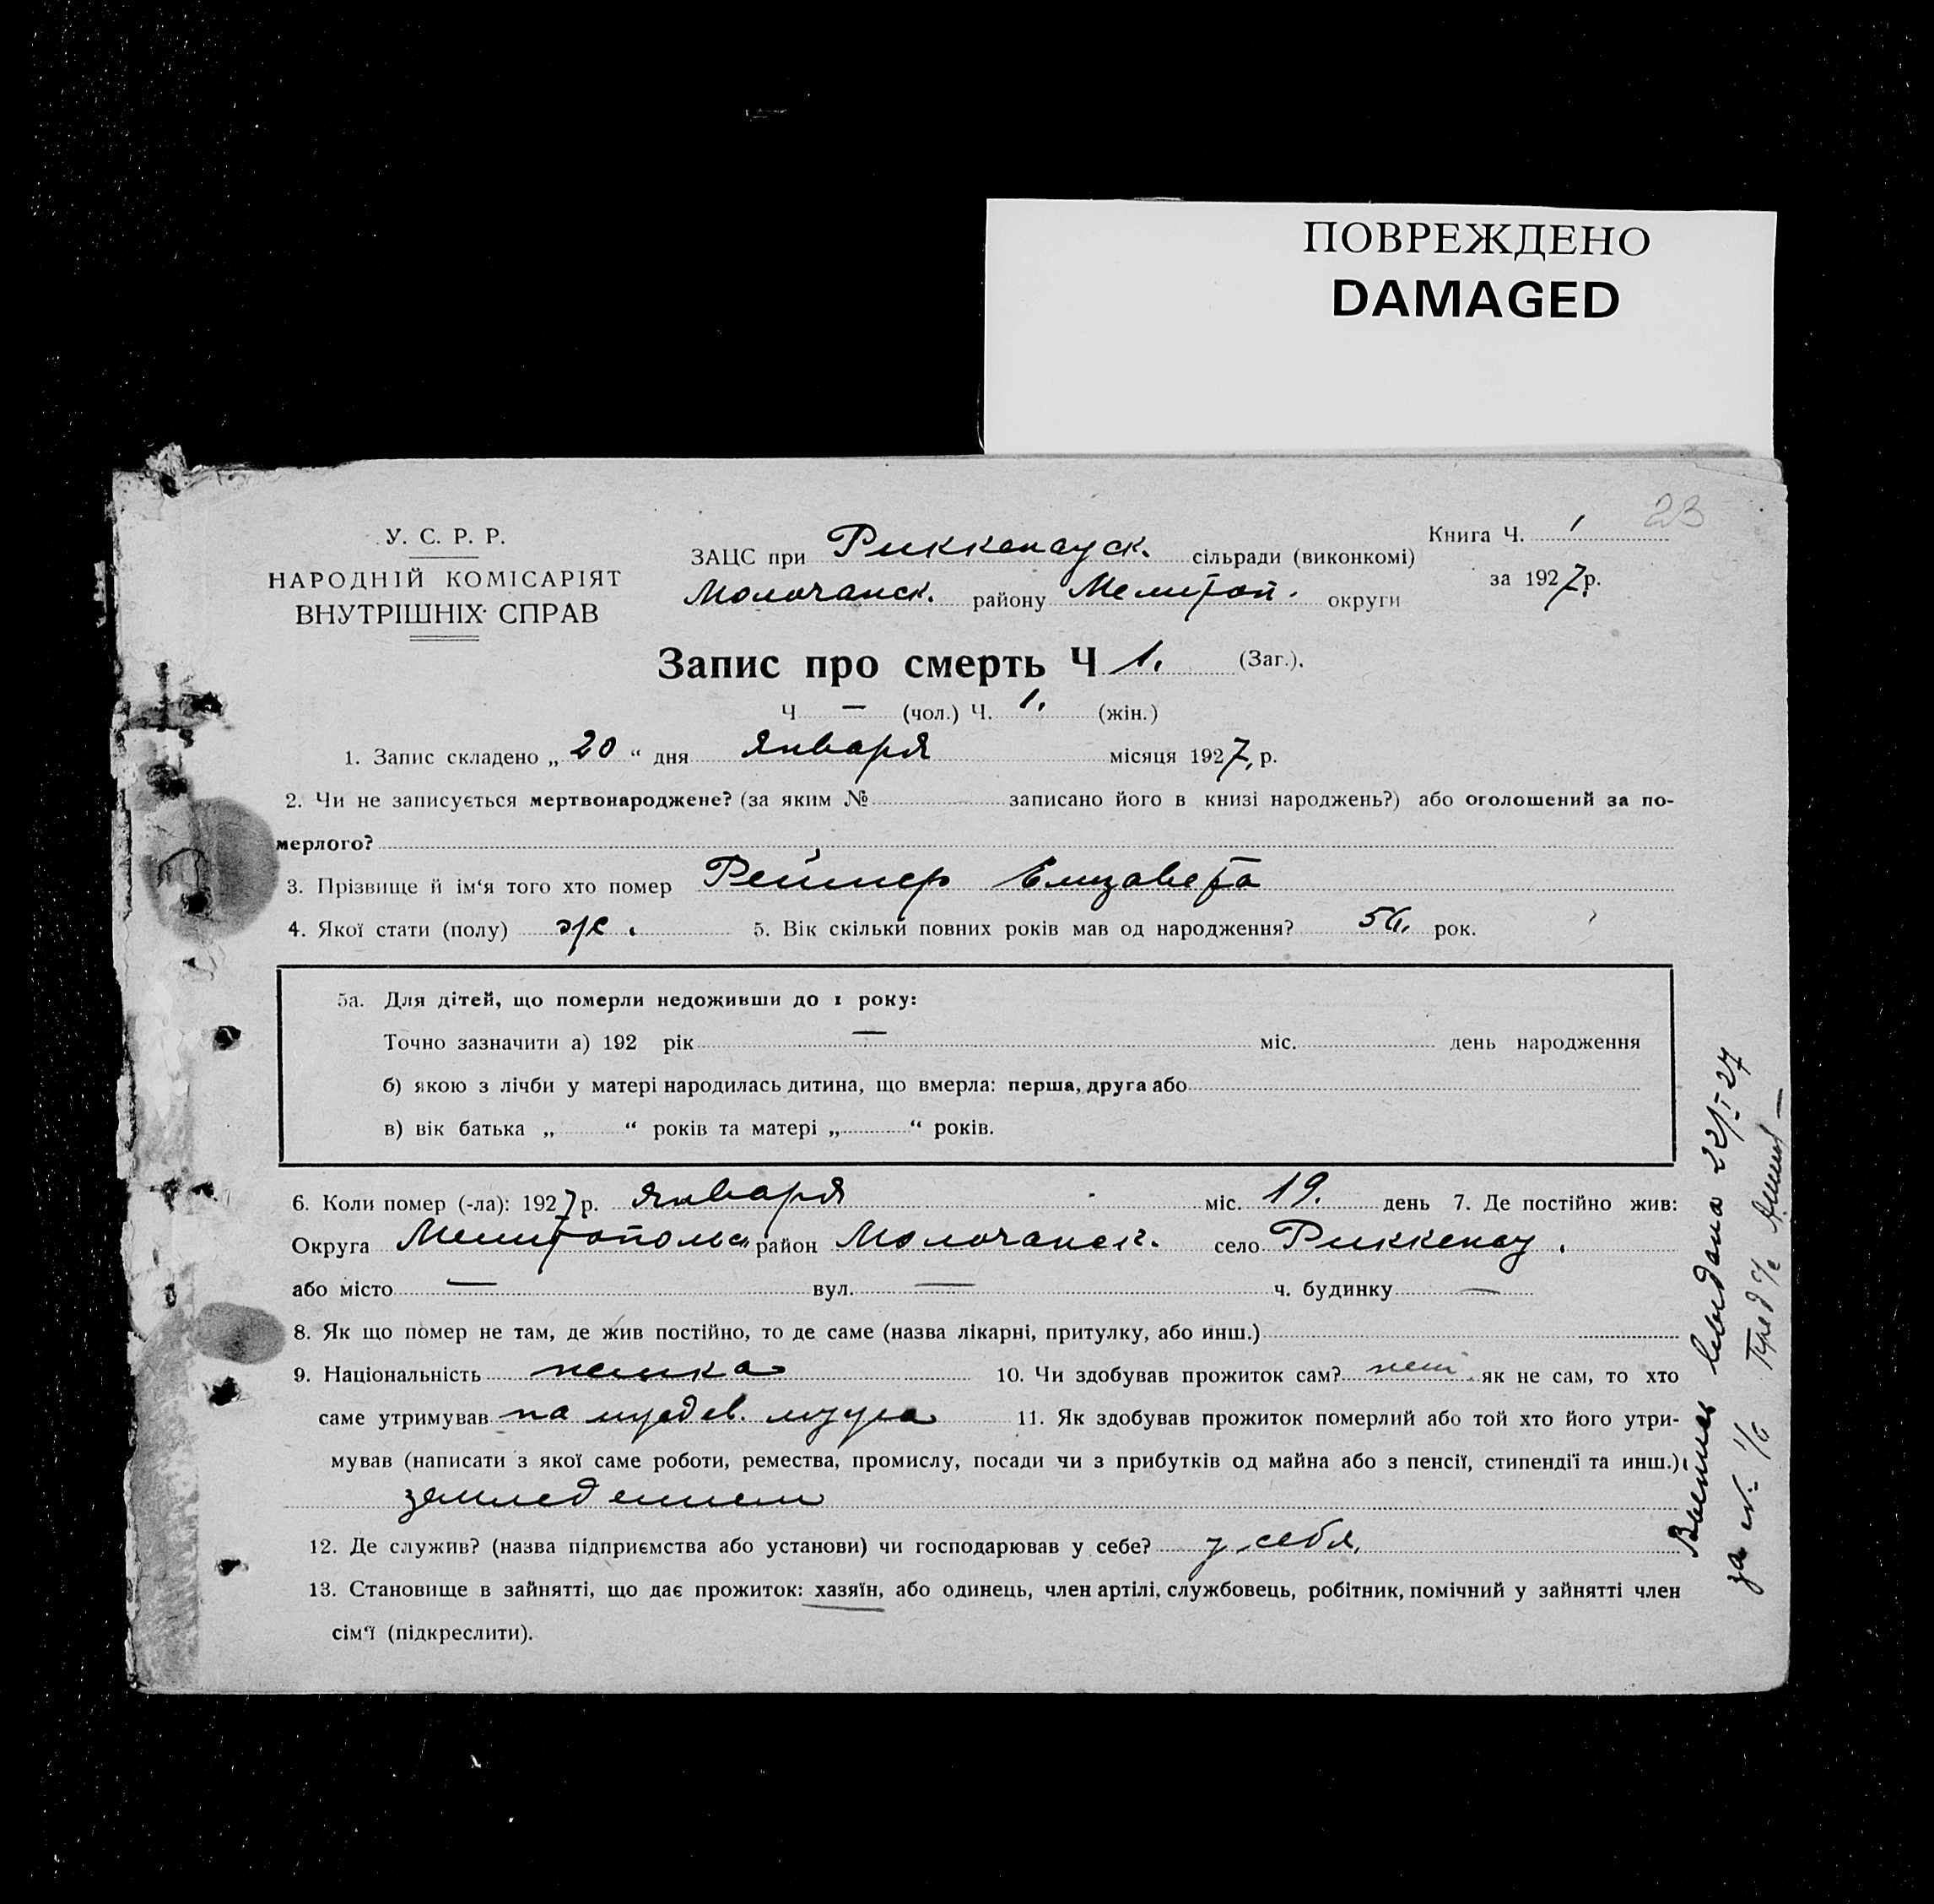 ПОВРЕЖДЕНО
DAMAGED
23
У. С. Р. Р.
НАРОДНІЙ КОМІСАРІЯТ
ВНУТРІШНІХ СПРАВ
ЗАЦС при Риккенауск. сільради (виконкомі)
Молочанск. району Мелитоп. округи
Книга Ч. 1
за 1927 р.
Запис про смерть Ч 1. (Заг.).
Ч — (чол.) Ч. 1. (жін.)
1. Запис складено „ 20 “ дня Января місяця 1927, р.
2. Чи не записується мертвонароджене? (за яким № записано його в книзі народжень?) або оголошений за по-
мерлого?
3. Прізвище й ім‘я того хто помер Реймер Елизавета
4. Якої стати (полу) ж. 5. Вік скільки повних років мав од народження? рок.
5а. Для дітей, що померли недоживши до 1 року:
Точно зазначити а) 192 рік — міс. день народження
б) якою з лічби у матері народилась дитина, що вмерла: перша, друга або
в) вік батька „ “ років та матері „ “ років.
6. Коли помер (-ла): 1927 р. Января міс. 19. день 7. Де постійно жив:
Округа Мелитопольс район Молочанск. село Риккенау.
або місто — вул. — ч. будинку —
8. Як що помер не там, де жив постійно, то де саме (назва лікарні, притулку, або инш.)
9. Національність немка 10. Чи здобував прожиток сам? нет як не сам, то хто
саме утримував на иждев. мужа 11. Як здобував прожиток померлий або той хто його утри-
мував (написати з якої саме роботи, ремества, промислу, посади чи з прибутків од майна або з пенсії, стипендії та инш.)
земледелием
12. Де служив? (назва підприємства або установи) чи господарював у себе? у себя.
13. Становище в зайнятті, що дає прожиток: хазяїн, або одинець, член артілі, службовець, робітник, помічний у зайнятті член
сім‘ї (підкреслити).
Выпись выдана 22/I 27
за № 1/6 Пред с/с